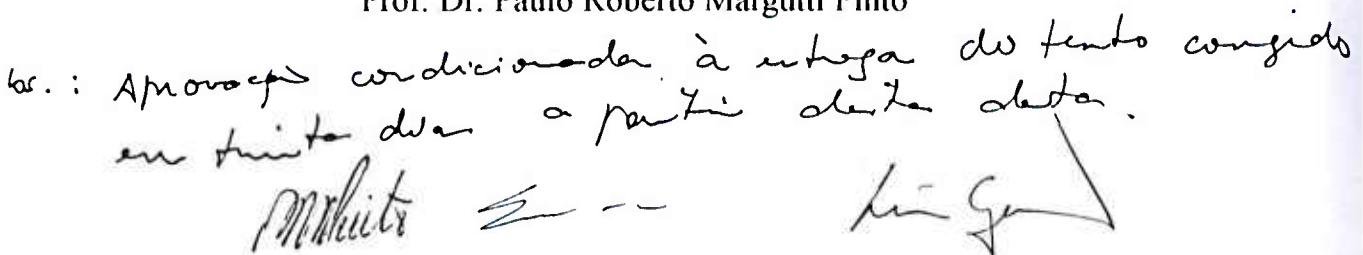 Prof. Dr. Paulo Roberto Margutti Pinto
Obs.: Aprovação condicionada à entrega do texto corrigido
em trinta dias a partir desta data.